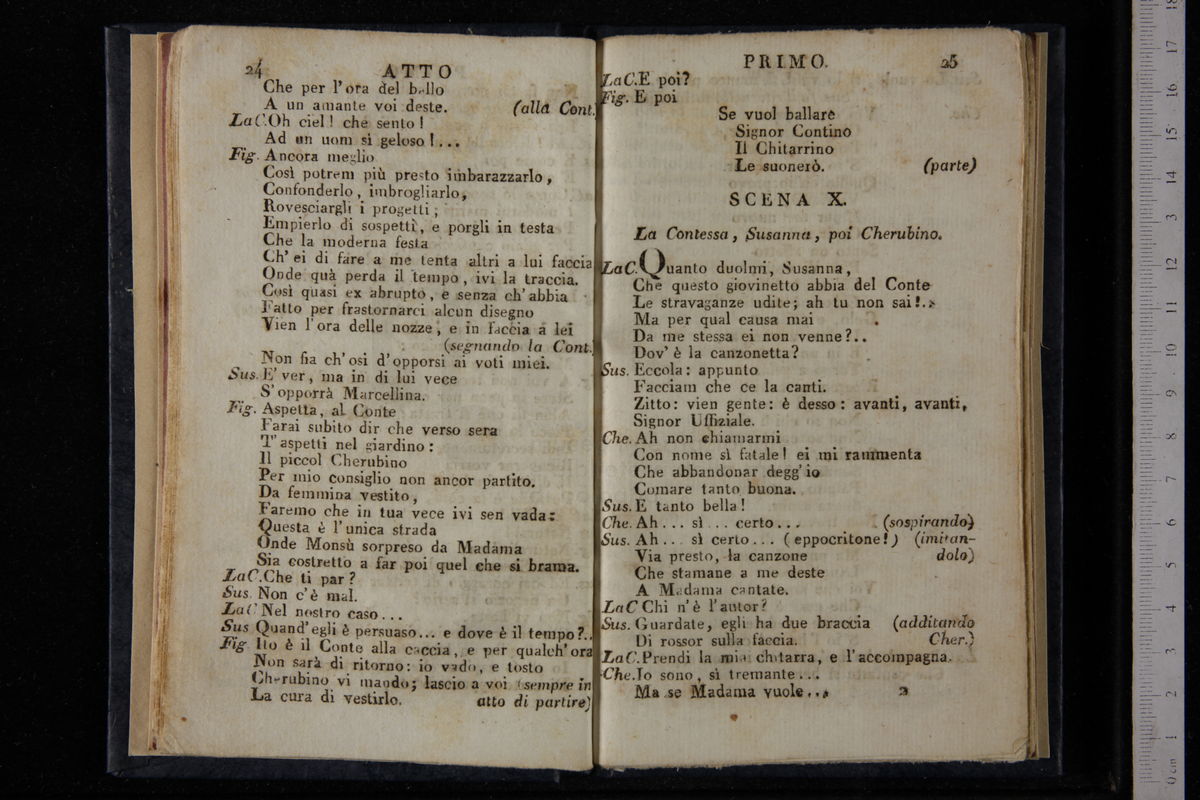 24 ATTO
Che per l'ora del ballo
A un amante voi deste. (alla Cont.
La C. Oh ciel! che sento!
Ad un uom sì geloso!...
Fig. Ancora meglio
Così potrem più presto imbarazzarlo,
Confonderlo, imbrogliarlo,
Rovesciargli i progetti;
Empierlo di sospetti, e porgli in testa
Che la moderna festa
Ch' ei di fare a me tenta altri a lui faccia
Onde quà perda il tempo, ivi la traccia.
Così quasi ex abrupto, e senza ch' abbia
Fatto per frastornarci alcun disegno
Vien l'ora delle nozze, e in faccia a lei
(segnando la Cont.)
Non fia ch' osi d'opporsi ai voti miei.
Sus. E' ver, ma in di lui vece
S'opporrà Marcellina.
Fig. Aspetta, al Conte
Farai subito dir che verso sera
T' aspetti nel giardino:
Il piccol Cherubino
Per mio consiglio non ancor partito.
Da femmina vestito,
Faremo che in tua vece ivi sen vada:
Questa è l'unica strada
Onde Monsù sorpreso da Madama
Sia costretto a far poi quel che si brama.
La C. Che ti par?
Sus. Non c'è mal.
La C Nel nostro caso...
Sus Quand' egli è persuaso... e dove è il tempo?..
Fig Ito è il Conte alla caccia, e per qualch' ora
Non sarà di ritorno: io vado, e tosto
Cherubino vi mando; lascio a voi (sempre in
La cura di vestirlo. atto di partire)
PRIMO. 25
La C. E poi?
Fig. E poi
Se vuol ballare
Signor Contino
Il Chitarrino
Le suonerò. (parte)
SCENA X.
La Contessa, Susanna, poi Cherubino.
La C. Quanto duolmi, Susanna,
Che questo giovinetto abbia del Conte
Le stravaganze udite; ah tu non sai!..
Ma per qual causa mai
Da me stessa ei non venne?..
Dov' è la canzonetta?
Sus. Eccola: appunto
Facciam che ce la canti.
Zitto: vien gente: è desso: avanti, avanti,
Signor Uffiziale.
Che. Ah non chiamarmi
Con nome sì fatale! ei mi rammenta
Che abbandonar degg' io
Comare tanto buona.
Sus. E tanto bella!
Che. Ah... sì... certo... (sospirando)
Sus. Ah... sì certo... (eppocritone!) (imitan-
Via presto, la canzone dolo)
Che stamane a me deste
A Madama cantate.
La C Chi n'è l'autor?
Sus. Guardate, egli ha due braccia (additando
Di rossor sulla faccia. Cher.)
La C. Prendi la mia chitarra, e l'accompagna.
Che. Io sono, sì tremante...
Ma se Madama vuole... 2